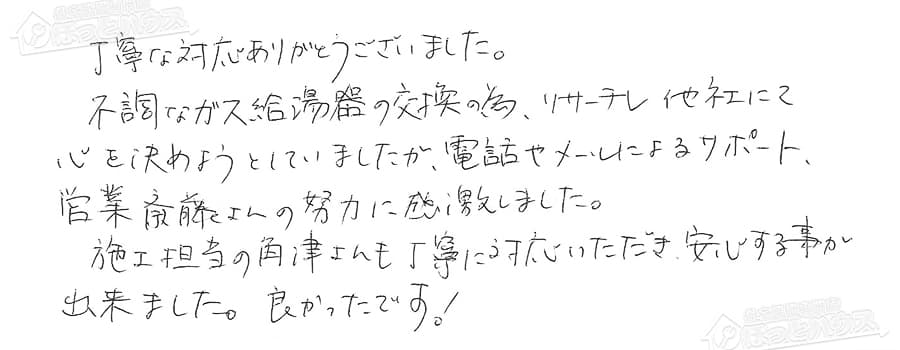 丁寧な対応ありがとうございました。
不調なガス給湯器の交換の為、リサーチし他社にて
心を決めようとしていましたが、電話やメールによるサポート、
営業斎藤さんの努力に感激しました。
施工担当の角津さんも丁寧に対応いただき、安心する事が
出来ました。良かったです!
ほっとハウス
ほっとハウス